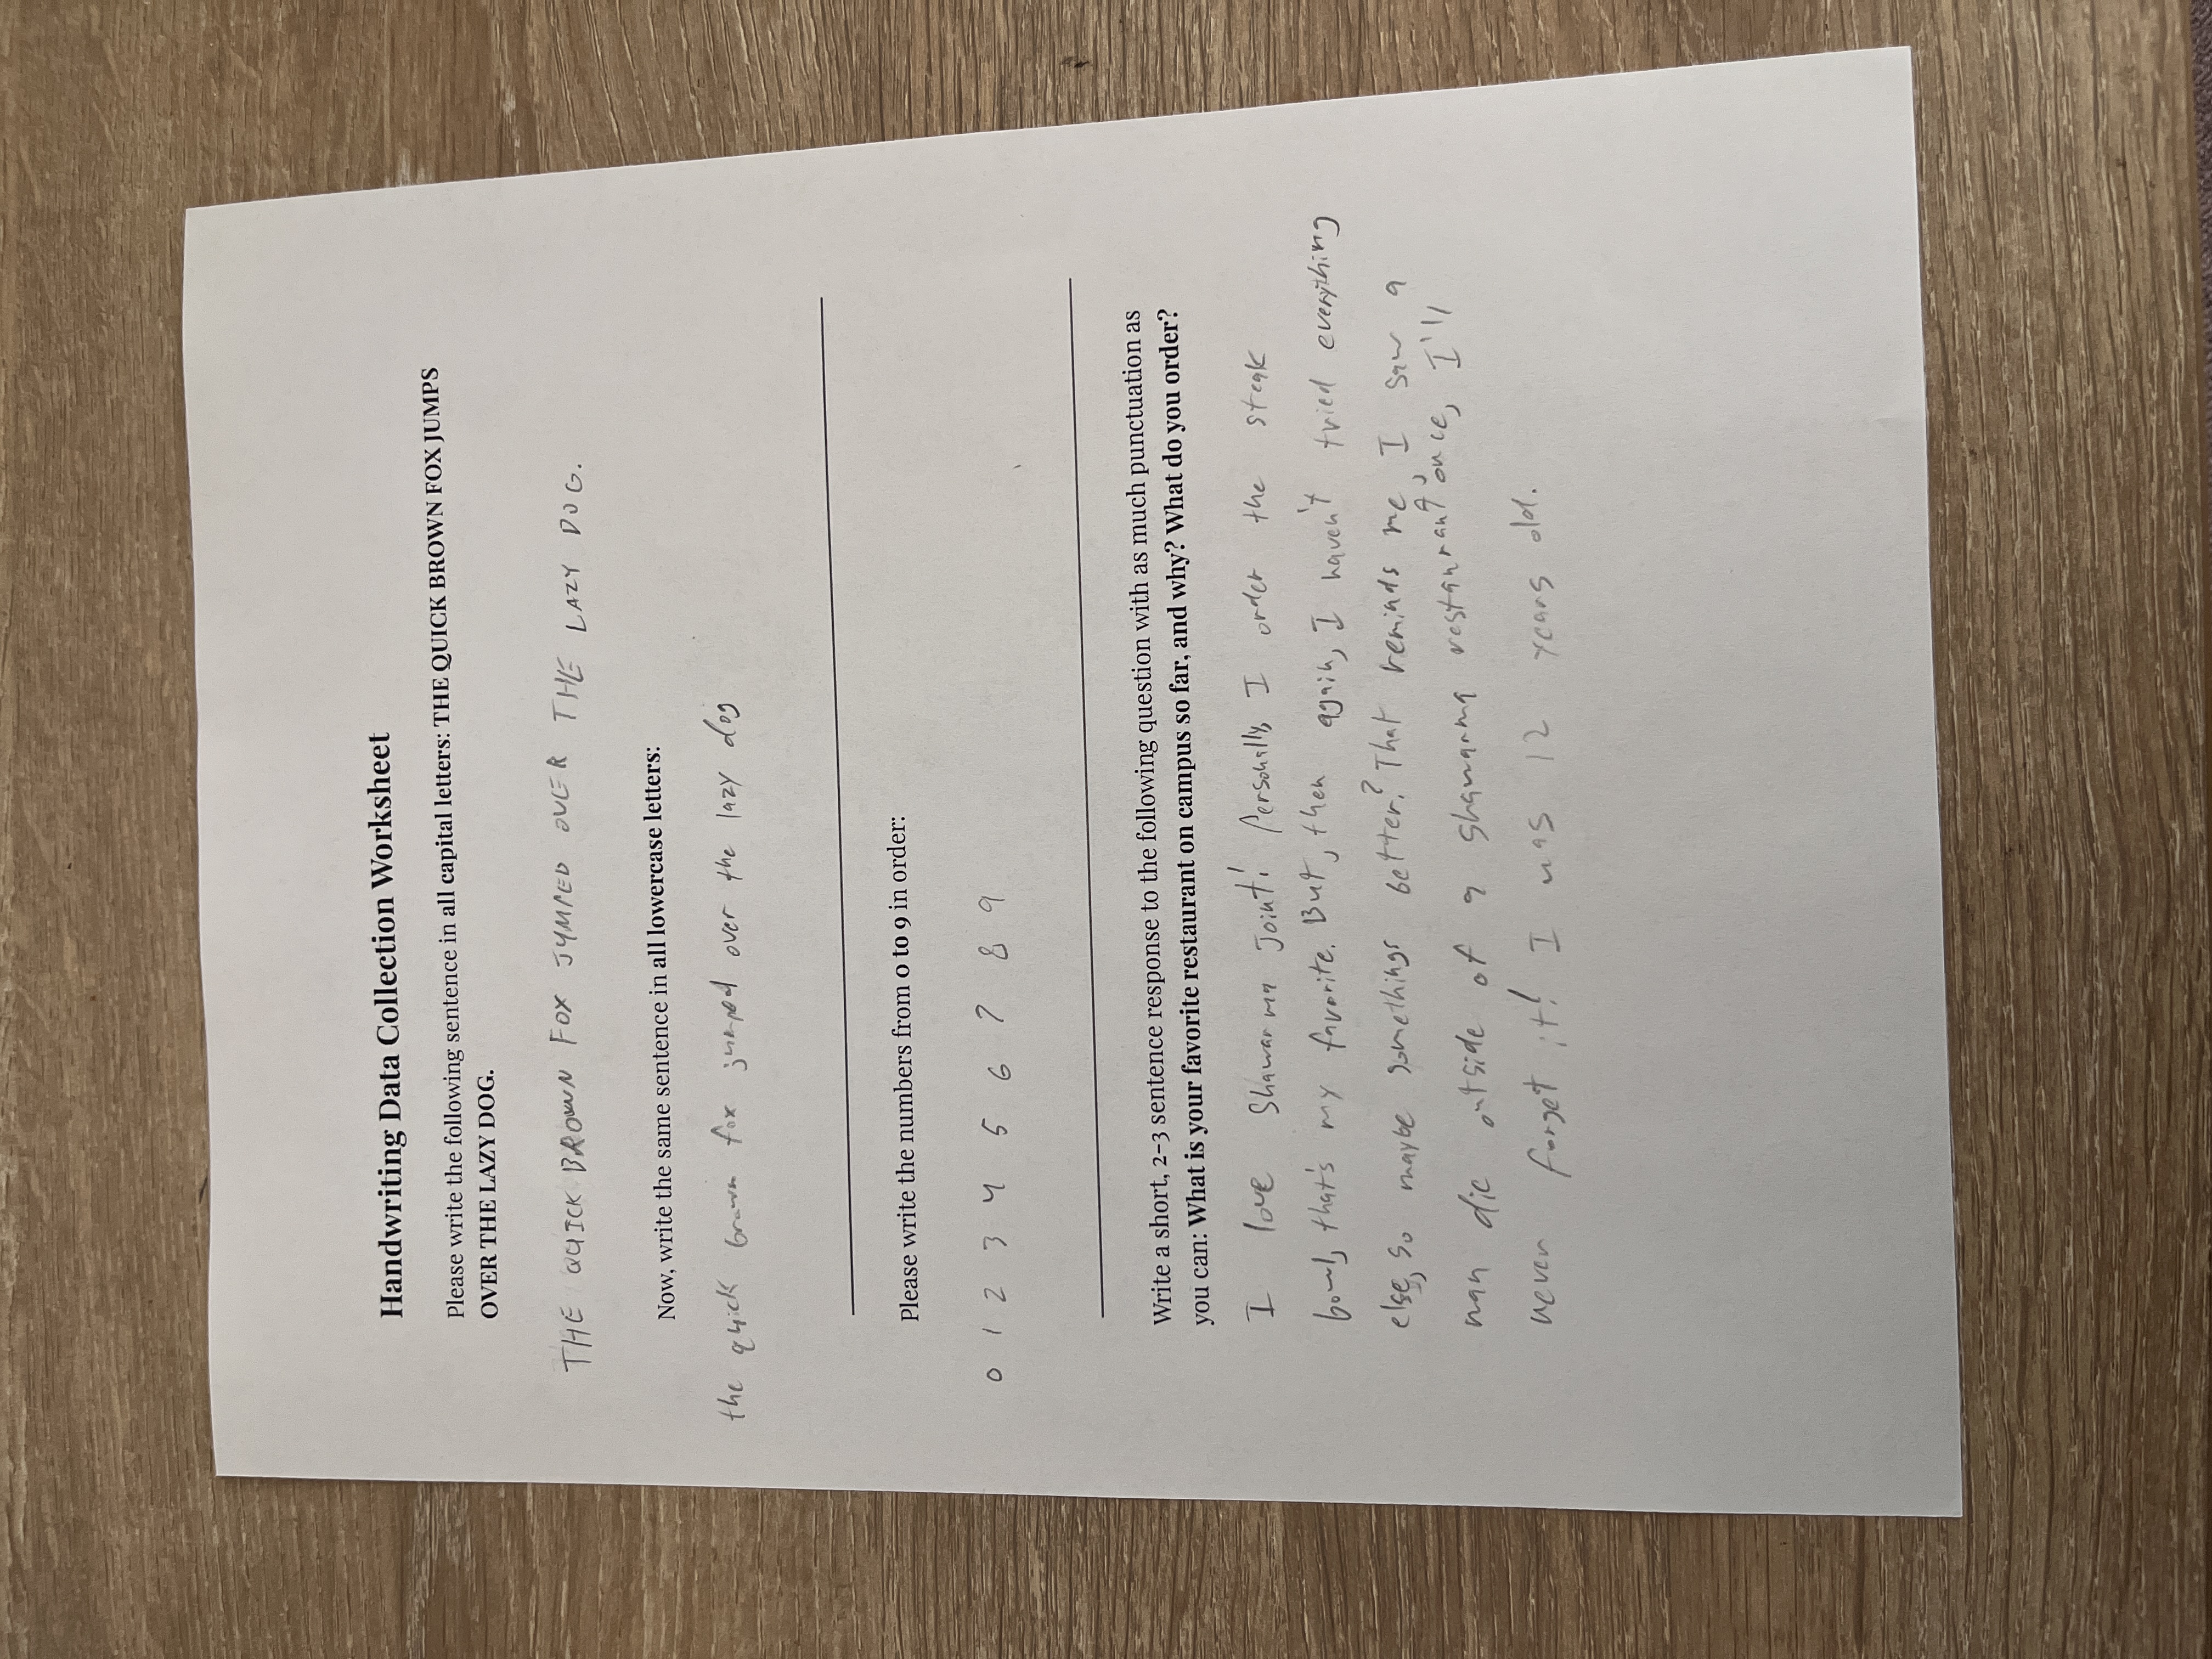 Handwriting Data Collection Worksheet
Please write the following sentence in all capital letters: THE QUICK BROWN FOX JUMPS
OVER THE LAZY DOG.
THE QUICK BROWN FOX JUMPED OVER THE LAZY DOG.
Now, write the same sentence in all lowercase letters:
the quick brown fox jumped over the lazy dog
Please write the numbers from 0 to 9 in order:
0 1 2 3 4 5 6 7 8 9
Write a short, 2-3 sentence response to the following question with as much punctuation as
you can: What is your favorite restaurant on campus so far, and why? What do you order?
I love Shawarma Joint! Personally, I order the steak
bowl, that's my favorite. But, then again, I haven't tried everything
else, so maybe somethings better? That reminds me, I saw a
man die outside of a shawarma restaurant once, I'll
never forget it! I was 12 years old.